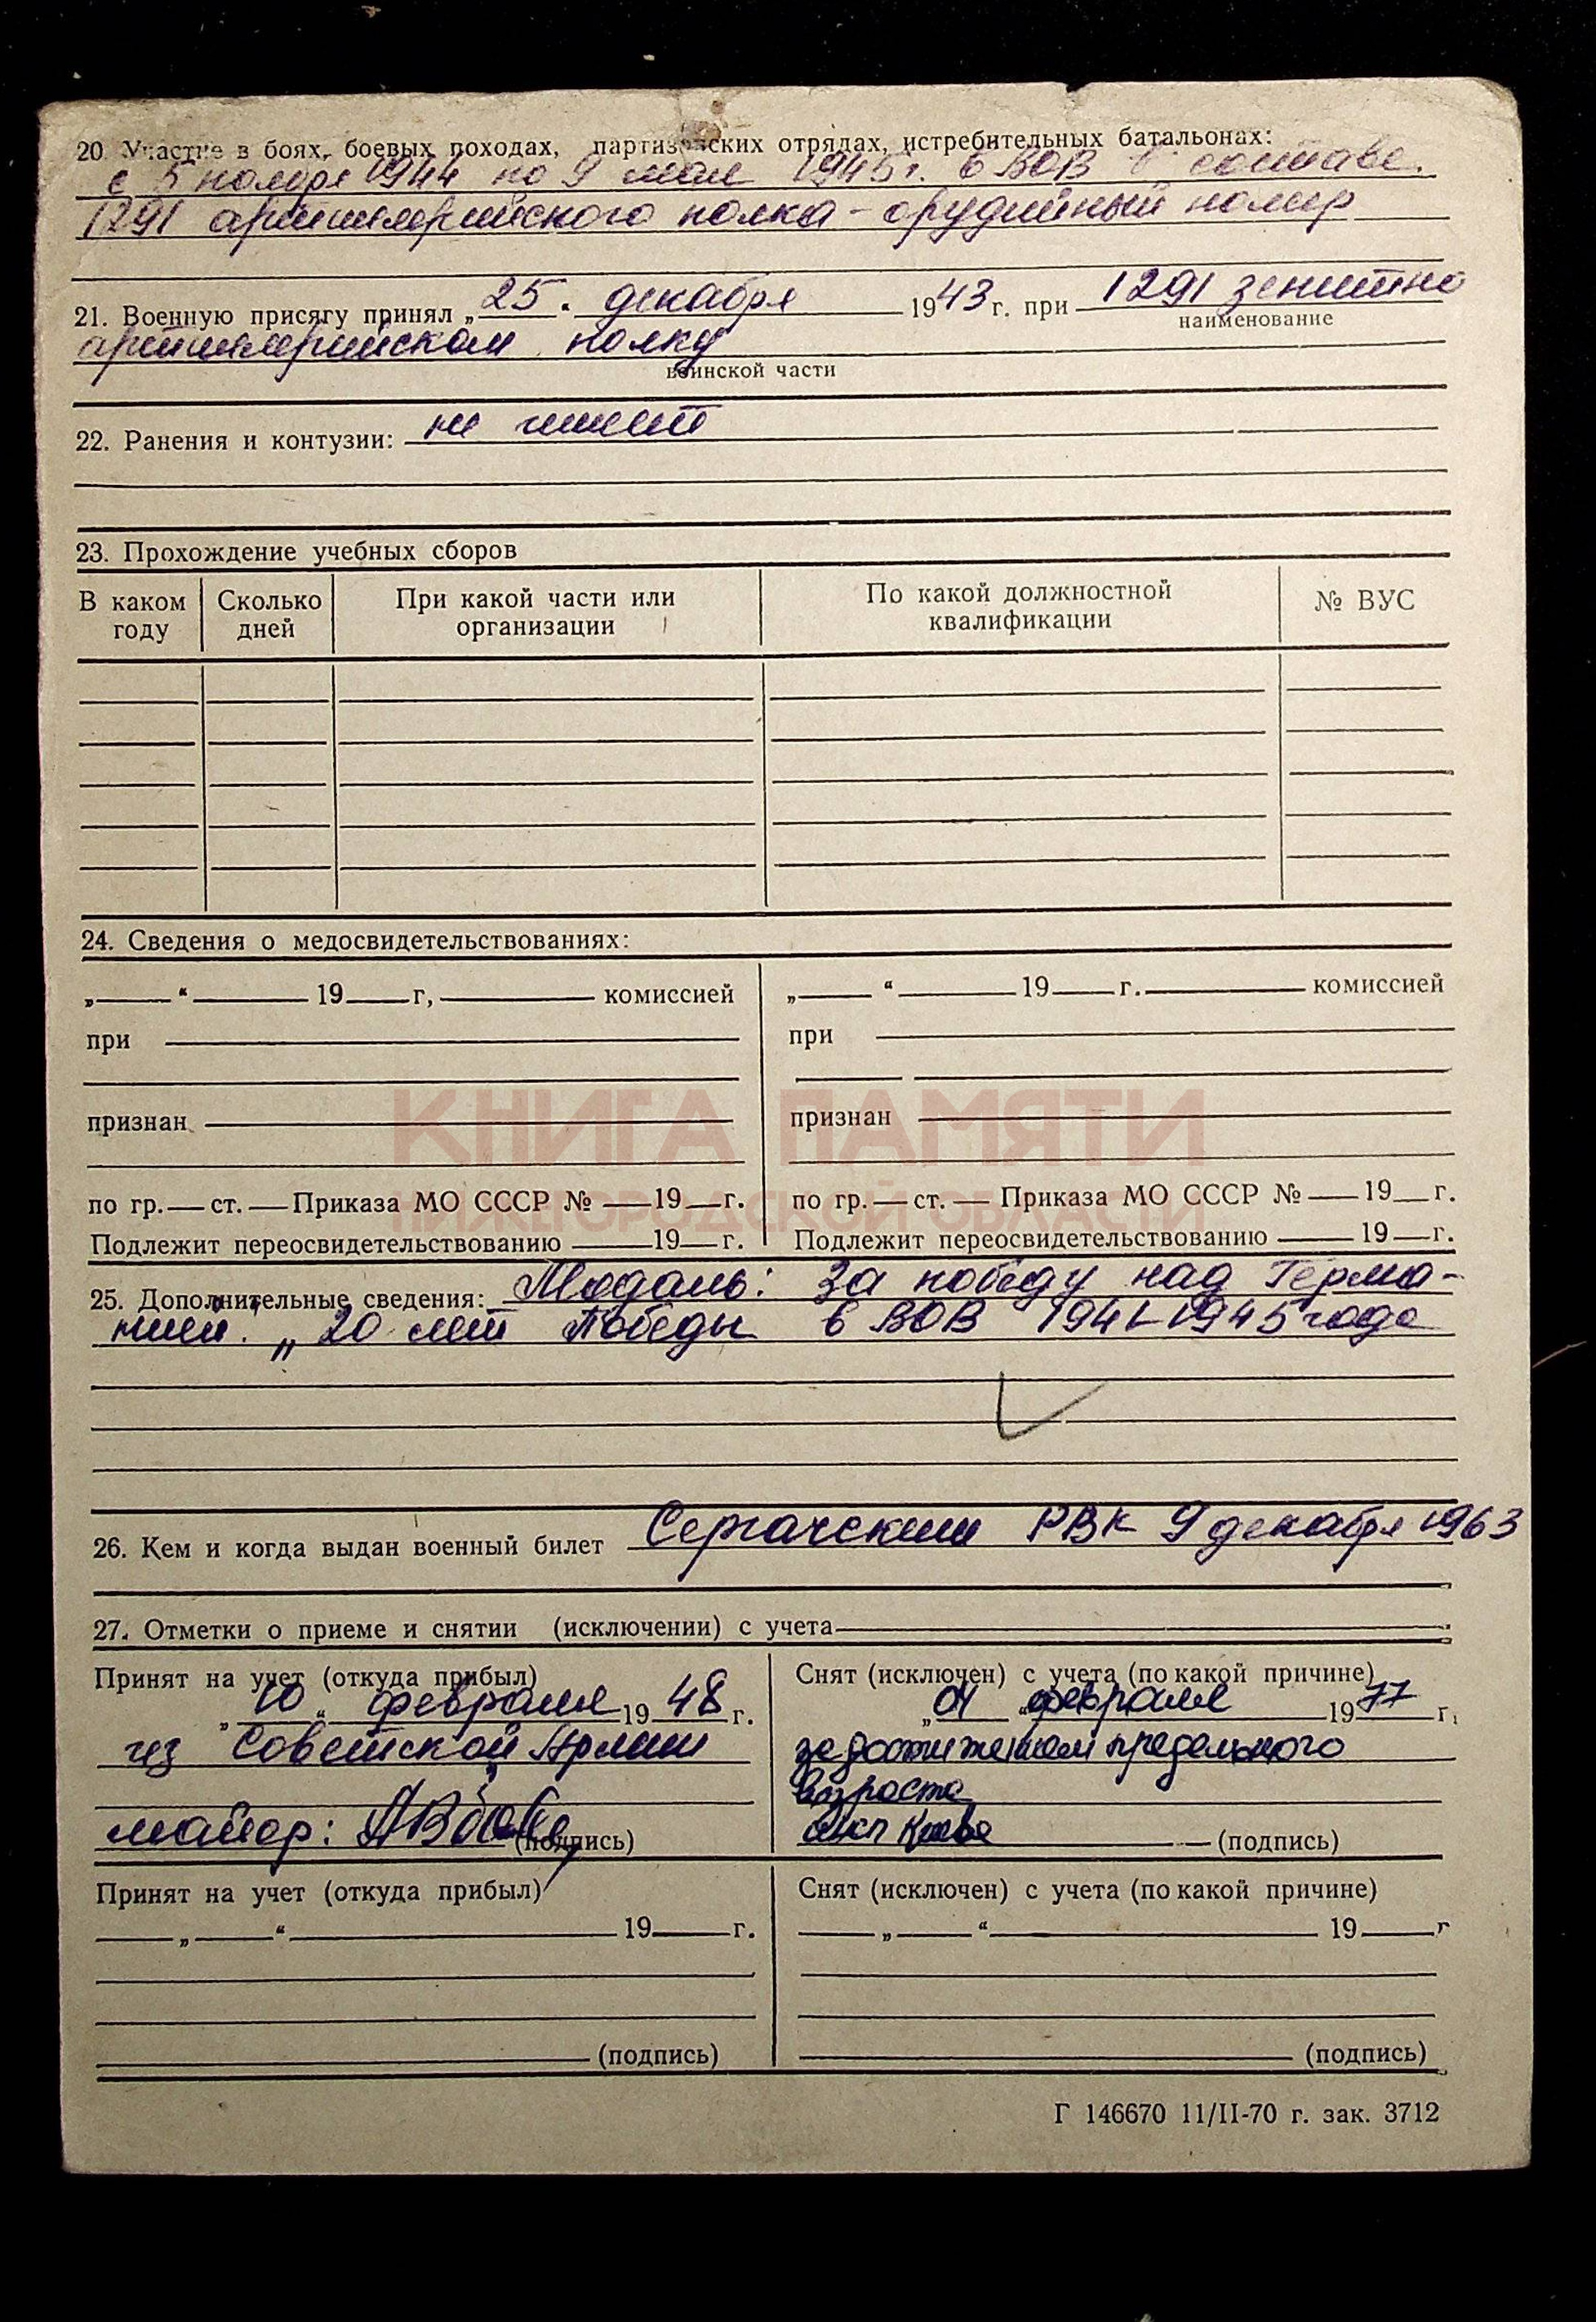 20. Участие в боях, боевых походах, партизанских отрядах, истребительных батальонах:
с 5 ноября 1944 по 9 мая 1945 г. в ВОВ в составе.
1291 артиллерийского полка - орудийный номер
21. Военную присягу принял „25." декабря 1943 г. при 1291 зенитно
наименование
артиллерийском полку
воинской части
22. Ранения и контузии: не имеет
23. Прохождение учебных сборов
В каком году Сколько дней При какой части или организации По какой должностной квалификации № ВУС
24. Сведения о медосвидетельствованиях:
„ “ 19 г, комиссией „ “ 19 г. комиссией
при при
КНИГА ПАМЯТИ
признан признан
НИЖЕГОРОДСКОЙ ОБЛАСТИ
по гр. — ст. — Приказа МО СССР № — 19 — г. по гр. — ст. — Приказа МО СССР № — 19 — г.
Подлежит переосвидетельствованию — 19 — г. Подлежит переосвидетельствованию — 19 — г.
25. Дополнительные сведения: Медаль: За победу над Герма-
нией. „20 лет Победы в ВОВ 1941-1945 года
26. Кем и когда выдан военный билет Сергачским РВК 9 декабря 1963
27. Отметки о приеме и снятии (исключении) с учета
Принят на учет (откуда прибыл)
„10“ февраля 1948 г.
из Советской Армии
майор:
(подпись)
Снят (исключен) с учета (по какой причине)
„01 февраля 1977 г.
за достижением предельного
возраста
(подпись)
Принят на учет (откуда прибыл)
„ “ 19 г.
(подпись)
Снят (исключен) с учета (по какой причине)
„ “ 19 г
(подпись)
Г 146670 11/II-70 г. зак. 3712